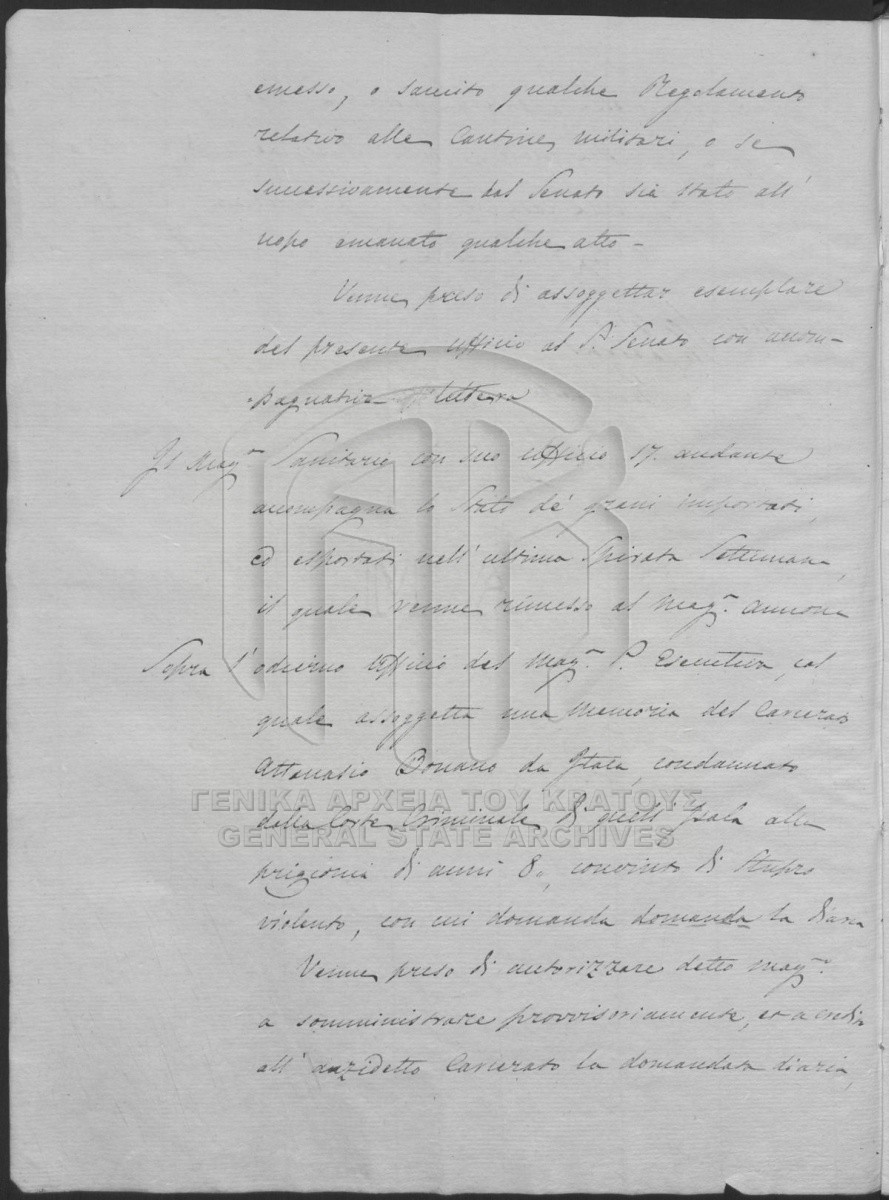 emesso, o sancito qualche Regolamento
relativo alle Cantine militari, o se
successivamente dal Senato sia stato all'
uopo emanato qualche atto –
Venne preso di assoggettar esemplare
del presente Ufficio al P. Senato con accom-
pagnatoria lettera
Il Mag.r Sanitario con suo ufficio 17. andante
accompagna lo Stato de' grani importati,
ed esportati nell' ultima Spirata Settimana,
il quale venne rimesso al Mag.r Annona
Sopra l' odierno Ufficio del Mag.r P. Esecutivo, col
quale assoggetta una Memoria del Carcerato
Attanasio Bonano da Itaca, condannato
dalla Corte Criminale di quell' Isola alla
prigionia di anni 8., convinto di Stupro
violento, con cui domanda domanda la diaria
Venne preso di autorizzare detto Mag.r
a somministrare provvisoriamente, et a credito
all' anzidetto Carcerato la domandata diaria,
ΓΕΝΙΚΑ ΑΡΧΕΙΑ ΤΟΥ ΚΡΑΤΟΥΣ
GENERAL STATE ARCHIVES